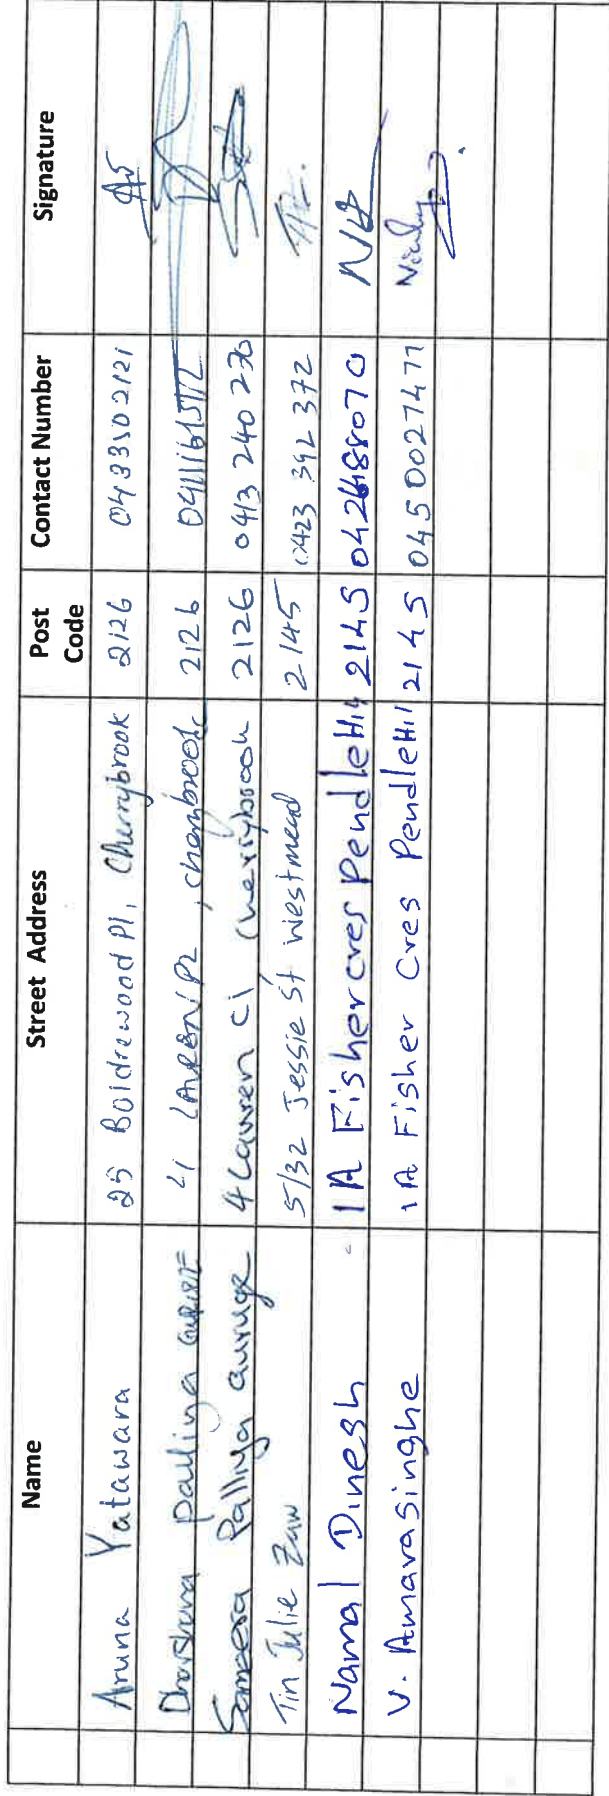 Name Street Address Post Code Contact Number Signature
Aruna Yatawara 25 Boldrewood Pl, Cherrybrook 2126 0433502121
Dharshana palliya 4 , cherrybrook 2126
Sameera Palliya Guruge 4 Lauren Cl Cherrybrook 2126 0413 240 270
Tin Julie Zaw 5/32 Jessie St Westmead 2145 0423 392 372
Namal Dinesh 1A Fisher cres Pendle Hill 2145 ND
V. Amarasinghe 1A Fisher Cres Pendle Hill 2145 0450027477